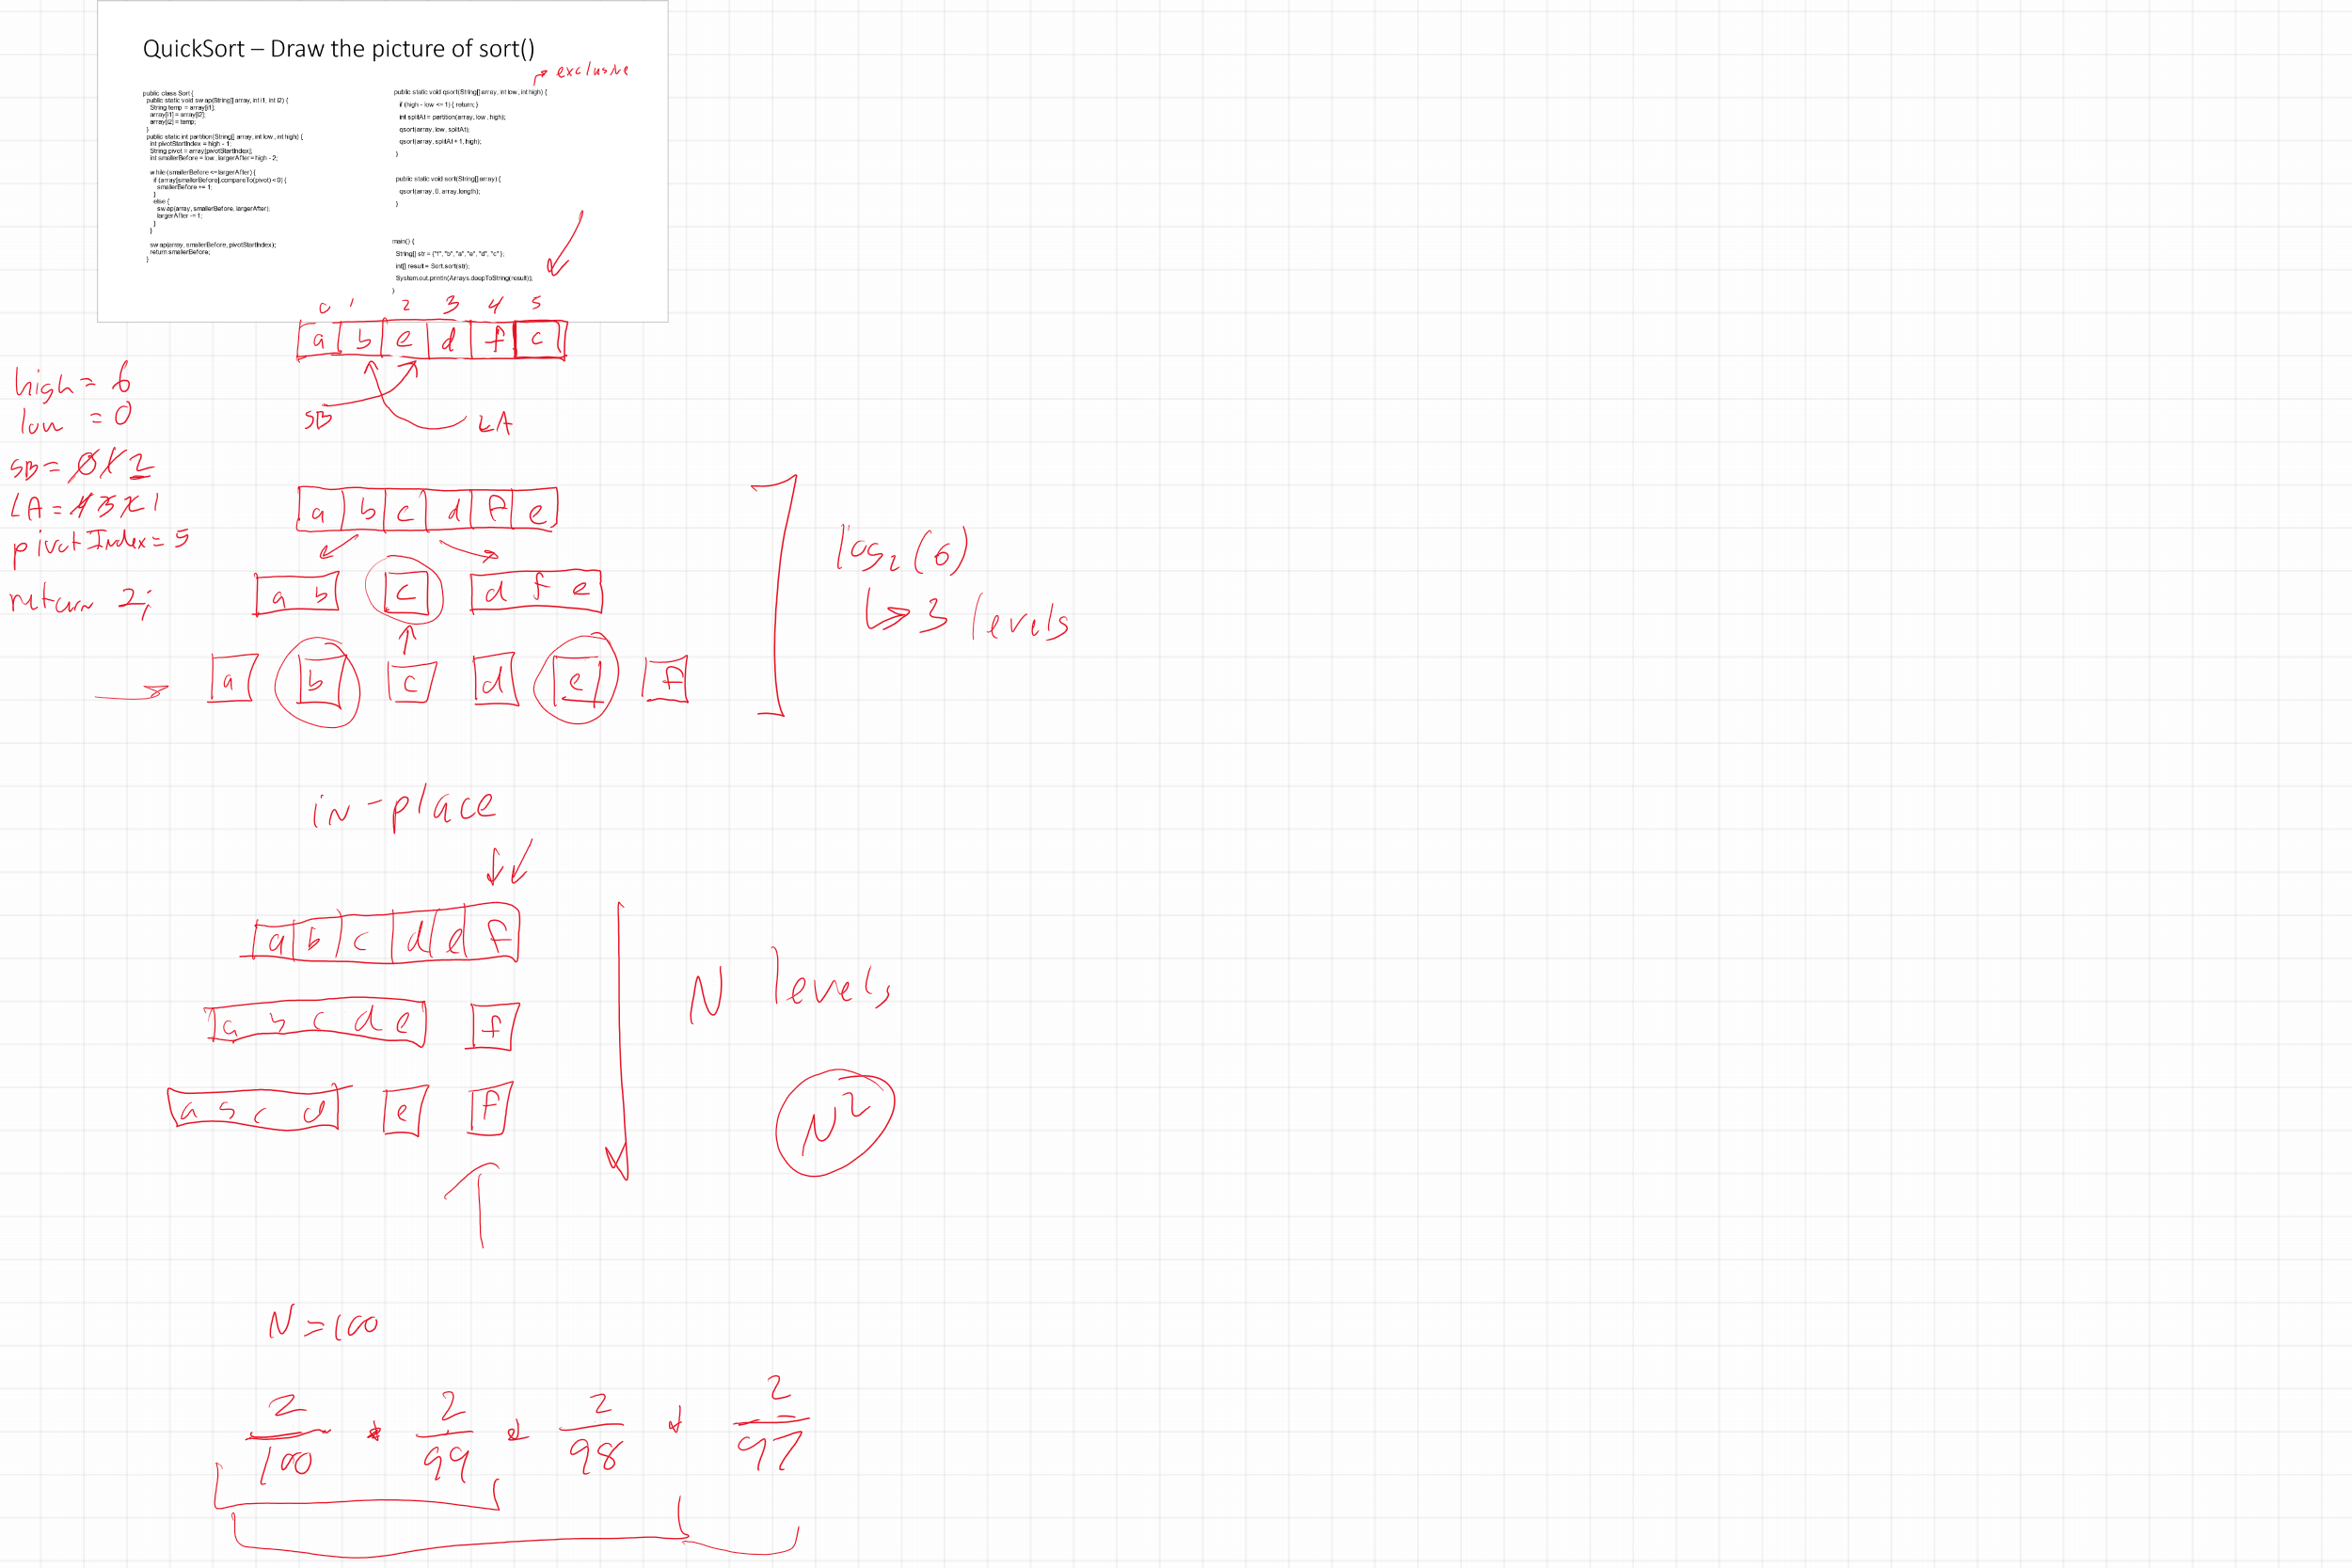 QuickSort – Draw the picture of sort()
exclusive
public class Sort {
public static void swap(String[] array, int i1, int i2) {
String temp = array[i1];
array[i1] = array[i2];
array[i2] = temp;
}
public static int partition(String[] array, int low, int high) {
int pivotStartIndex = high - 1;
String pivot = array[pivotStartIndex];
int smallerBefore = low, largerAfter = high - 2;
while (smallerBefore <= largerAfter) {
if (array[smallerBefore].compareTo(pivot) < 0) {
smallerBefore += 1;
}
else {
swap(array, smallerBefore, largerAfter);
largerAfter -= 1;
}
}
swap(array, smallerBefore, pivotStartIndex);
return smallerBefore;
}
public static void qsort(String[] array, int low, int high) {
if (high - low <= 1) { return; }
int splitAt = partition(array, low, high);
qsort(array, low, splitAt);
qsort(array, splitAt + 1, high);
}
public static void sort(String[] array) {
qsort(array, 0, array.length);
}
main() {
String[] str = {"f", "b", "a", "e", "d", "c" };
int[] result = Sort.sort(str);
System.out.println(Arrays.deepToString(result));
}
0 1 2 3 4 5
a b e d f c
SB LA
high = 6
low = 0
SB = 0 1 2
LA = 4 3 2 1
pivotIndex = 5
return 2;
a b c d f e
a b c d f e
a b c d e f
log2(6)
3 levels
in-place
a b c d e f
a b c d e f
a b c d e f
N levels
N²
N = 100
2 2 2 2
100 * 99 * 98 * 97